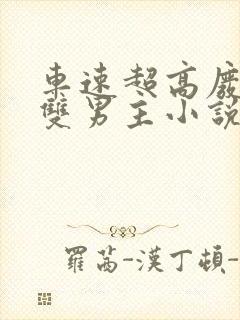 車速超高廢
雙男主小說
羅茜-漢丁頓-